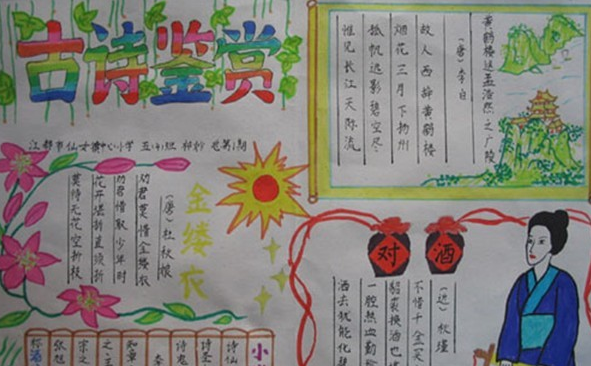 古诗鉴赏
江都市仙女镇中心小学 五(4)班
黄鹤楼送孟浩然之广陵
(唐) 李白
故人西辞黄鹤楼
烟花三月下扬州
孤帆远影碧空尽
惟见长江天际流
金缕衣
(唐) 杜秋娘
劝君莫惜金缕衣
劝君惜取少年时
花开堪折直须折
莫待无花空折枝
对酒
(近) 秋瑾
不惜千金买
貂裘换酒也堪
一腔热血勤珍
洒去犹能化碧
小
诗仙
诗圣
诗鬼